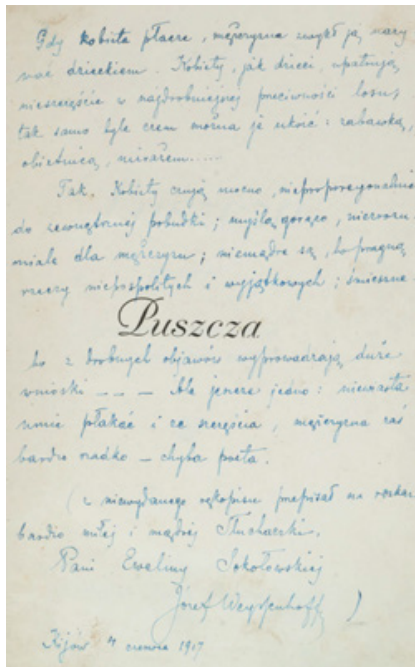 Gdy kobieta płacze, mężczyzna zwykł ją nazy
wać dzieckiem. Kobiety, jak dzieci, upatrują
nieszczęście w najdrobniejszej przeciwności losu,
tak samo byle czem można je ukoić: zabawką,
obietnicą, mirażem.....
Tak. Kobiety czują mocno, nieproporcjonalnie
do zewnętrznej pobudki; myślą gorąco, niezrozu
miale dla mężczyzn; niemądre są, bo pragną
rzeczy niepospolitych i wyjątkowych; śmieszne
Puszcza
bo z drobnych objawów wyprowadzają duże
wnioski _ _ _ Ale jeszcze jedno: niewiasta
umie płakać i ze szczęścia, mężczyzna zaś
bardzo rzadko — chyba poeta.
(z niewydanego rękopisu przepisał na rozkaz
bardzo miłej i mądrej Słuchaczki,
Pani Eweliny Sokołowskiej
Józef Weyssenhoff)
Kijów 4 czerwca 1917